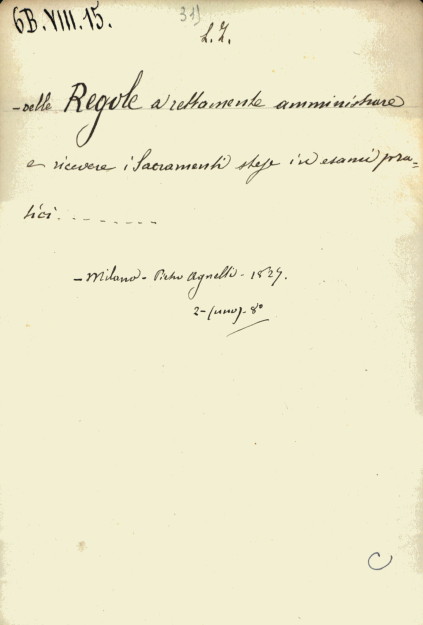 6B.VIII.15.
31)
L. Z.
-delle Regole a rettamente amministrare
e ricevere i Sacramenti stese in esami pra=
tici. - - - - - - -
- Milano - Pietro Agnelli - 1827.
2-(uno)- 8°
C